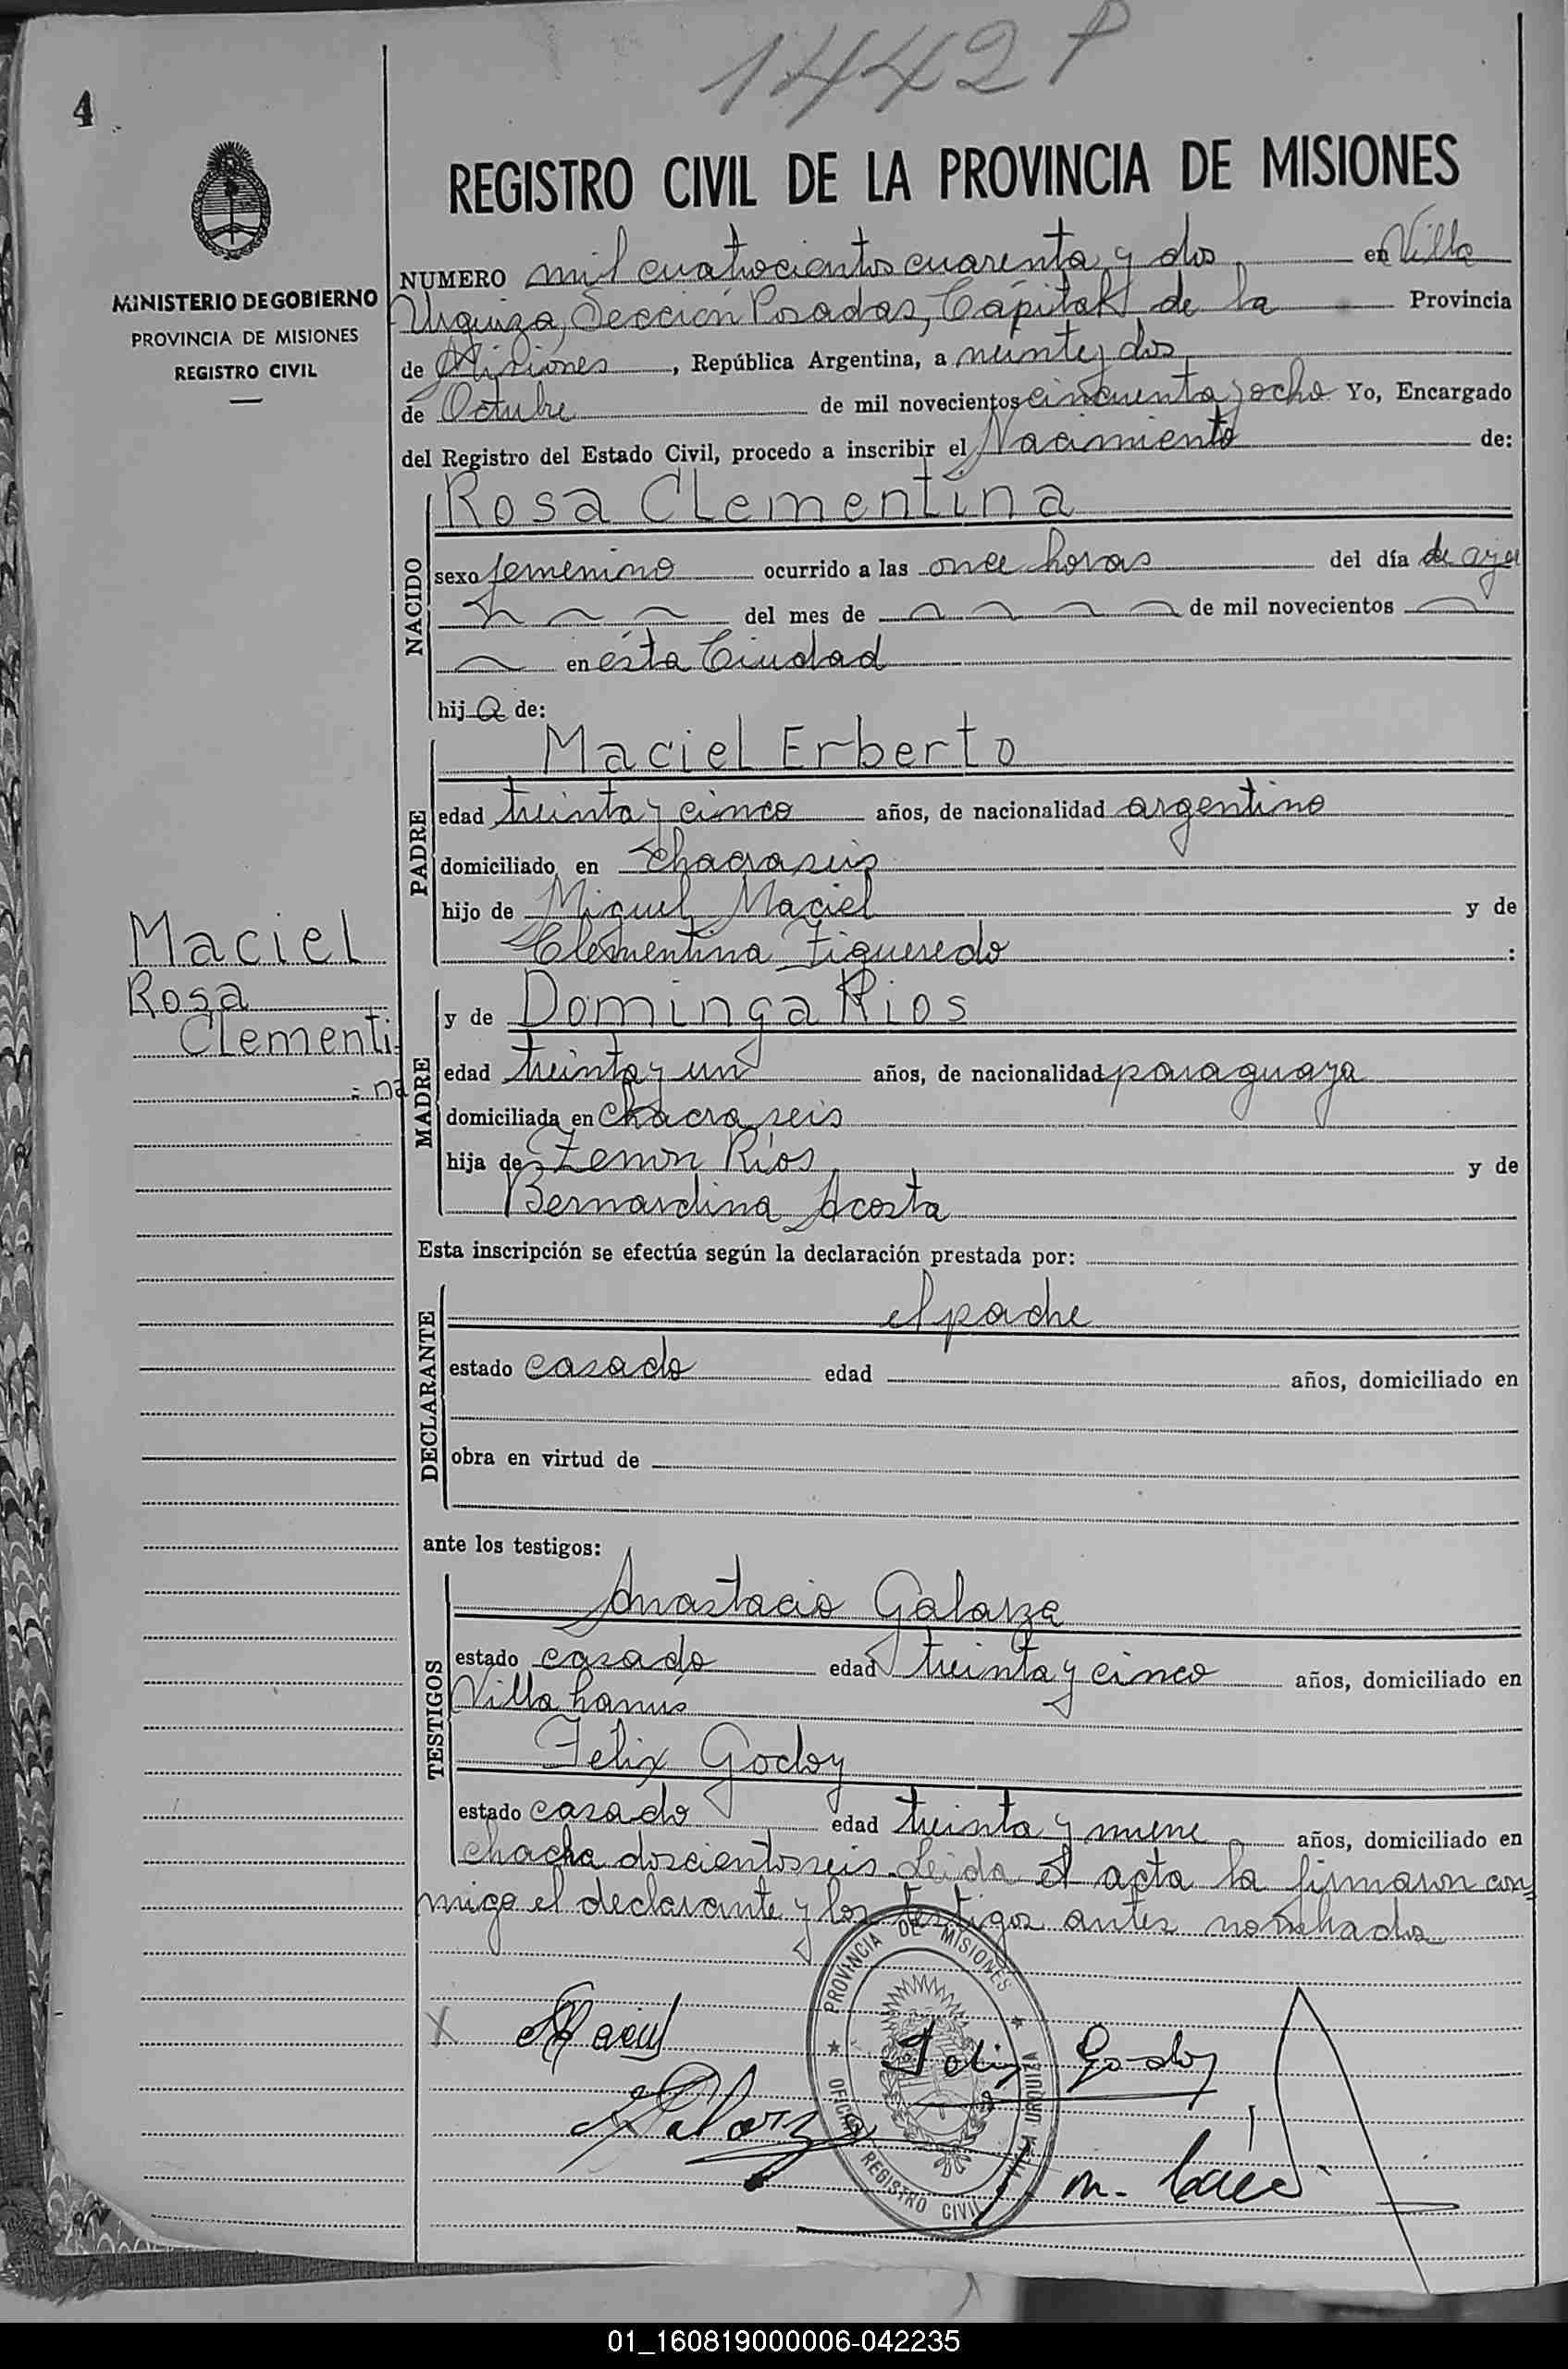 1442 P
4
REGISTRO CIVIL DE LA PROVINCIA DE MISIONES
MINISTERIO DE GOBIERNO
PROVINCIA DE MISIONES
REGISTRO CIVIL
NUMERO mil cuatrocientos cuarenta y dos en Villa
Urquiza, Sección Posadas, Cápital de la Provincia
de Misiones, República Argentina, a veinte y dos
de Octubre de mil novecientos cincuenta y ocho Yo, Encargado
del Registro del Estado Civil, procedo a inscribir el Nacimiento de:
NACIDO
Rosa Clementina
sexo femenino ocurrido a las once horas del día de ayer
del mes de de mil novecientos
en ésta Ciudad
hija de:
PADRE
Maciel Erberto
edad treinta y cinco años, de nacionalidad argentino
domiciliado en chacra seis
hijo de Miguel Maciel y de
Clementina Figueredo :
Maciel
Rosa
Clementi=
=na
MADRE
y de Dominga Rios
edad treinta y un años, de nacionalidad paraguaya
domiciliada en chacra seis
hija de Zenon Ríos y de
Bernardina Acosta
Esta inscripción se efectúa según la declaración prestada por:
DECLARANTE
el padre
estado casado edad años, domiciliado en
obra en virtud de
ante los testigos:
TESTIGOS
Anastacio Galarza
estado casado edad treinta y cinco años, domiciliado en
Villa Lanús
Felix Godoy
estado casado edad treinta y nueve años, domiciliado en
chacra doscientos seis. Leida el acta la firmaron con=
migo el declarante y los testigos antes nombrados
PROVINCIA DE MISIONES
OFICINA REGISTRO CIVIL VILLA URQUIZA
X Maciel
Felix Godoy
Galarza
01_160819000006-042235